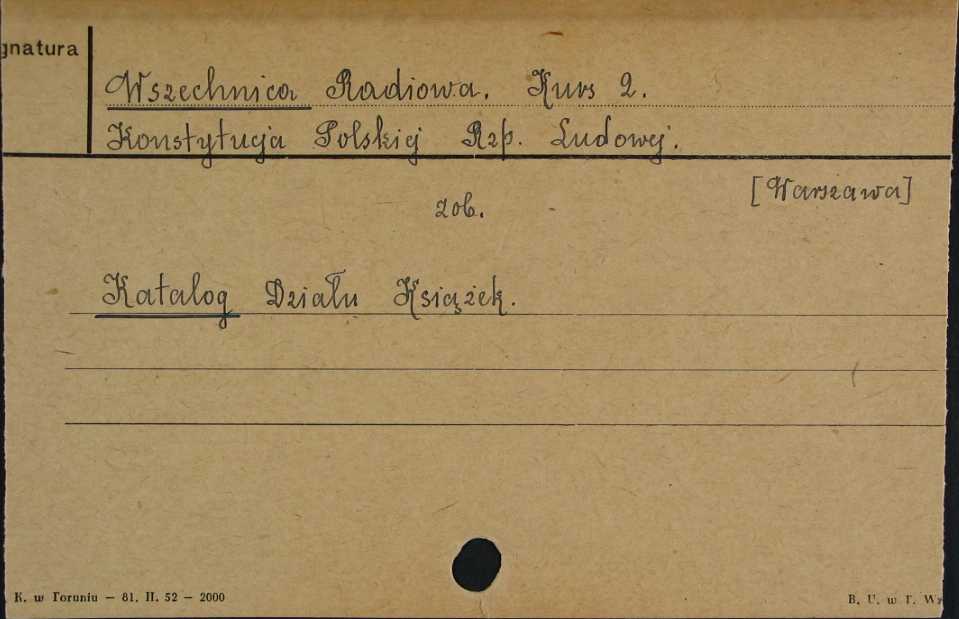 gnatura
Wszechnica Radiowa. Kurs 2.
Konstytucja Polskiej Rzp. Ludowej.
[Warszawa]
zob.
Katalog Działu Książek.
K. w Toruniu — 81. II. 52 — 2000
B. U. w T.